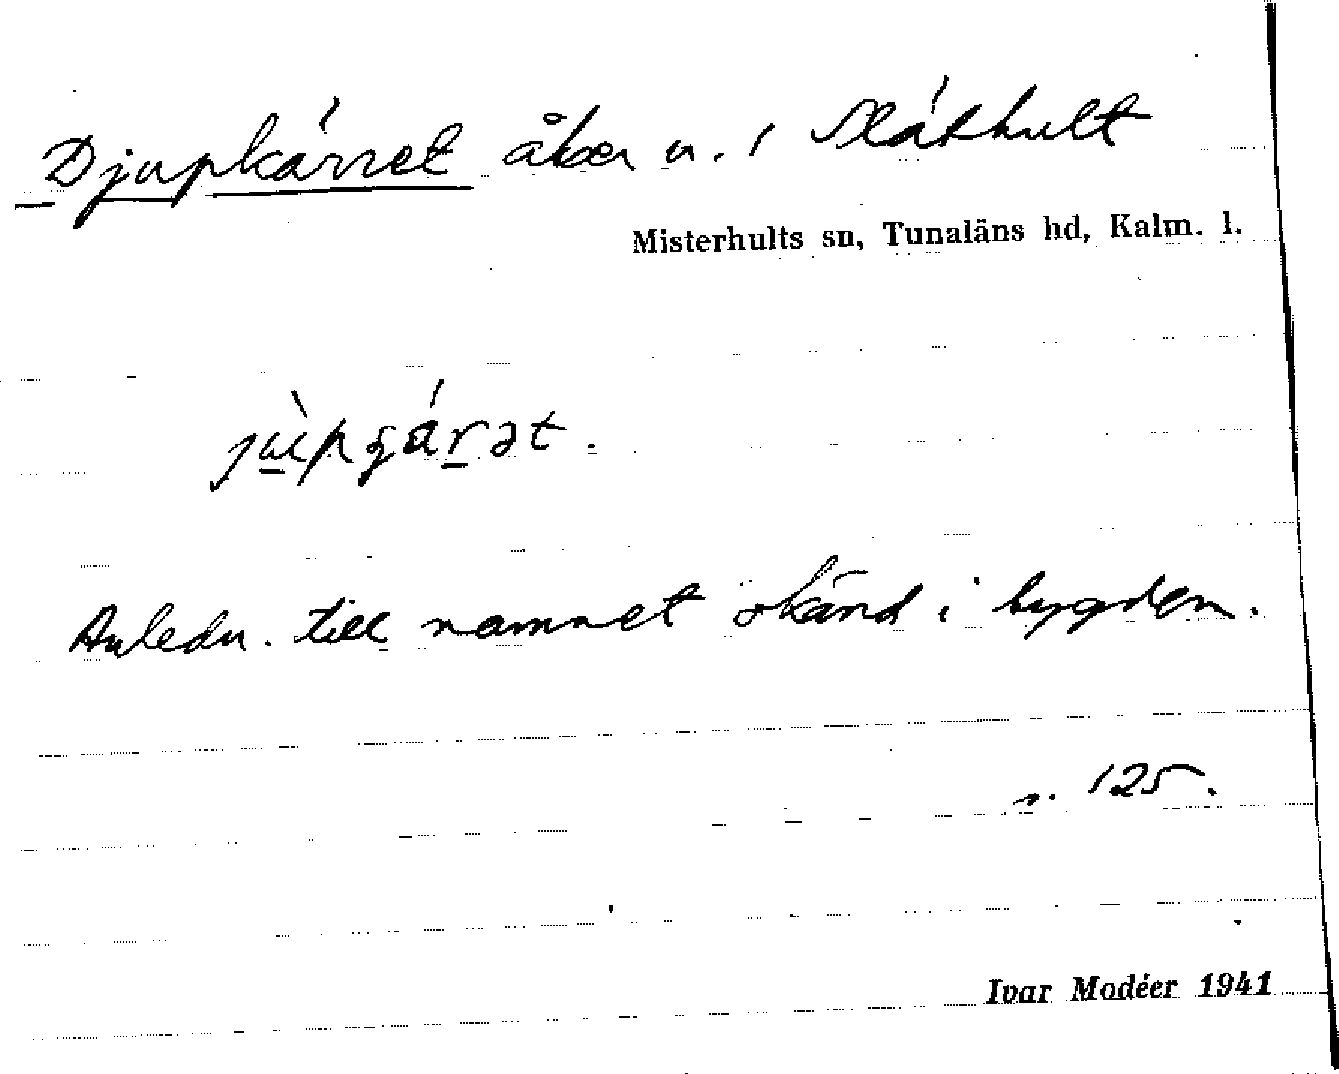 Djupkärret åker n. i Släthult
Misterhults sn, Tunaläns hd, Kalm. l.
Anledn. till namnet okänd i bygden.
s. 125.
Ivar Modéer 1941